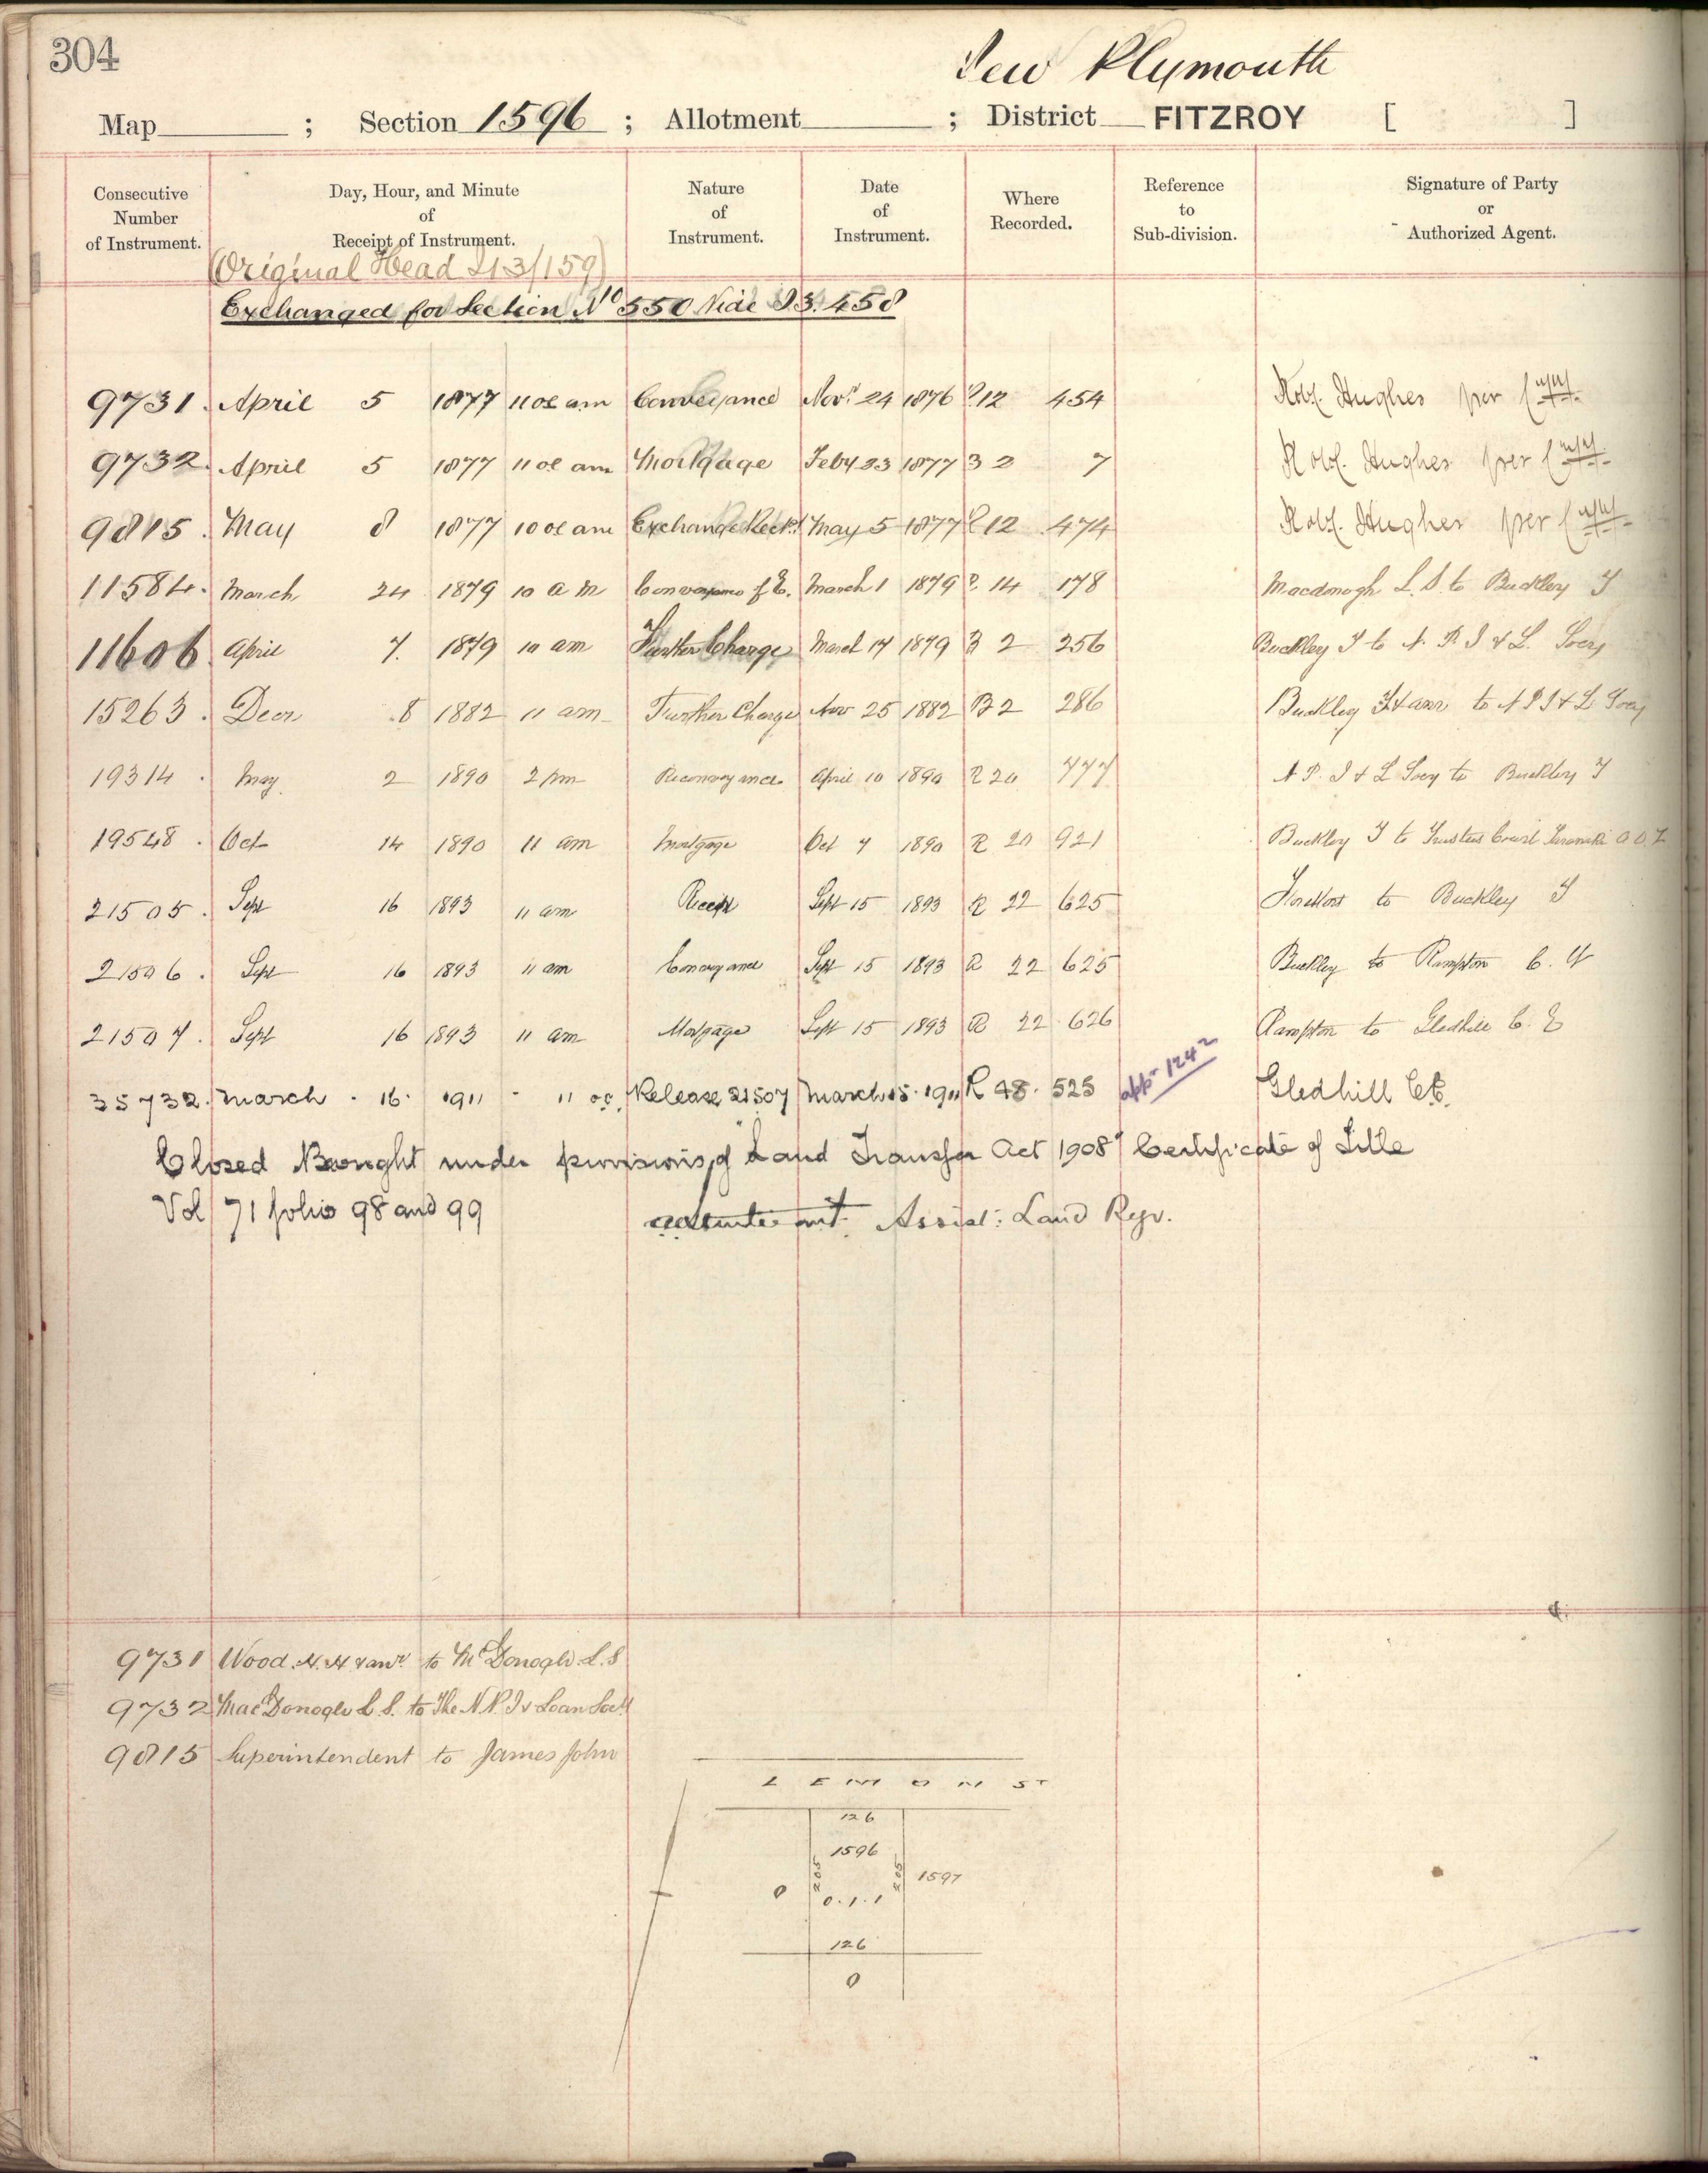 304
New Plymouth
Map ; Section 1596 ; Allotment ; District FITZROY [ ]
Consecutive Number of Instrument. Day, Hour, and Minute of Receipt of Instrument. Nature of Instrument. Date of Instrument. Where Recorded. Reference to Sub-division. Signature of Party or Authorized Agent.
(Original Head I13/159)
Exchanged for Section No 550 Vide I3. 458
9731. April 5 1877 11 oc am Conveyance Novr 24 1876 R12 454 Robt. Hughes per
9732. April 5 1877 11 oc am Mortgage Feby 23 1877 B 2 7 Robt. Hughes per
9815. May 8 1877 10 oc am Exchange May 5 1877 R 12 474 Robt. Hughes per
11584. March 24 1879 10 a m Conveyance of E. March 1 1879 R 14 178 Macdonogh L. S. to Buckley T
11606 April 7. 1879 10 am Further Charge March 17 1879 B 2 256 Buckley T to N. P. I & L. Socy
15263. Decr 8 1882 11 am Further Charge Nov 25 1882 B 2 286 Buckley T & anr to N P I & L Socy
19314. May 2 1890 2 pm Reconveyance April 10 1890 R 20 777 N P. I & L Socy to Buckley T
19548. Oct 14 1890 11 am Mortgage Oct 7 1890 R 20 921 Buckley T to Trustees Court Taranaki A O F
21505. Sept 16 1893 11 am Receipt Sept 15 1893 R 22 625 to Buckley T
21506. Sept 16 1893 11 am Conveyance Sept 15 1893 R 22 625 Buckley to Rampton C. Y
21507. Sept 16 1893 11 am Mortgage Sept 15 1893 R 22 626 Rampton to Gledhill C. E
35732. March 16. 1911 11 oc. Release 21507 March 15. 1911 R 48. 525 app- 1242 Gledhill CE.
Closed Brought under provisions of Land Transfer Act 1908 Certificate of Title
Vol 71 folio 98 and 99 Assist: Land Regr.
9731 Wood. & anr to McDonogh. L. S
9732 MacDonogh L. S. to The N P. I & Loan Socy
9815 Superintendent to James John
LEMON ST
126
1596
205 205 1597
0 0. 1. 1
126
0